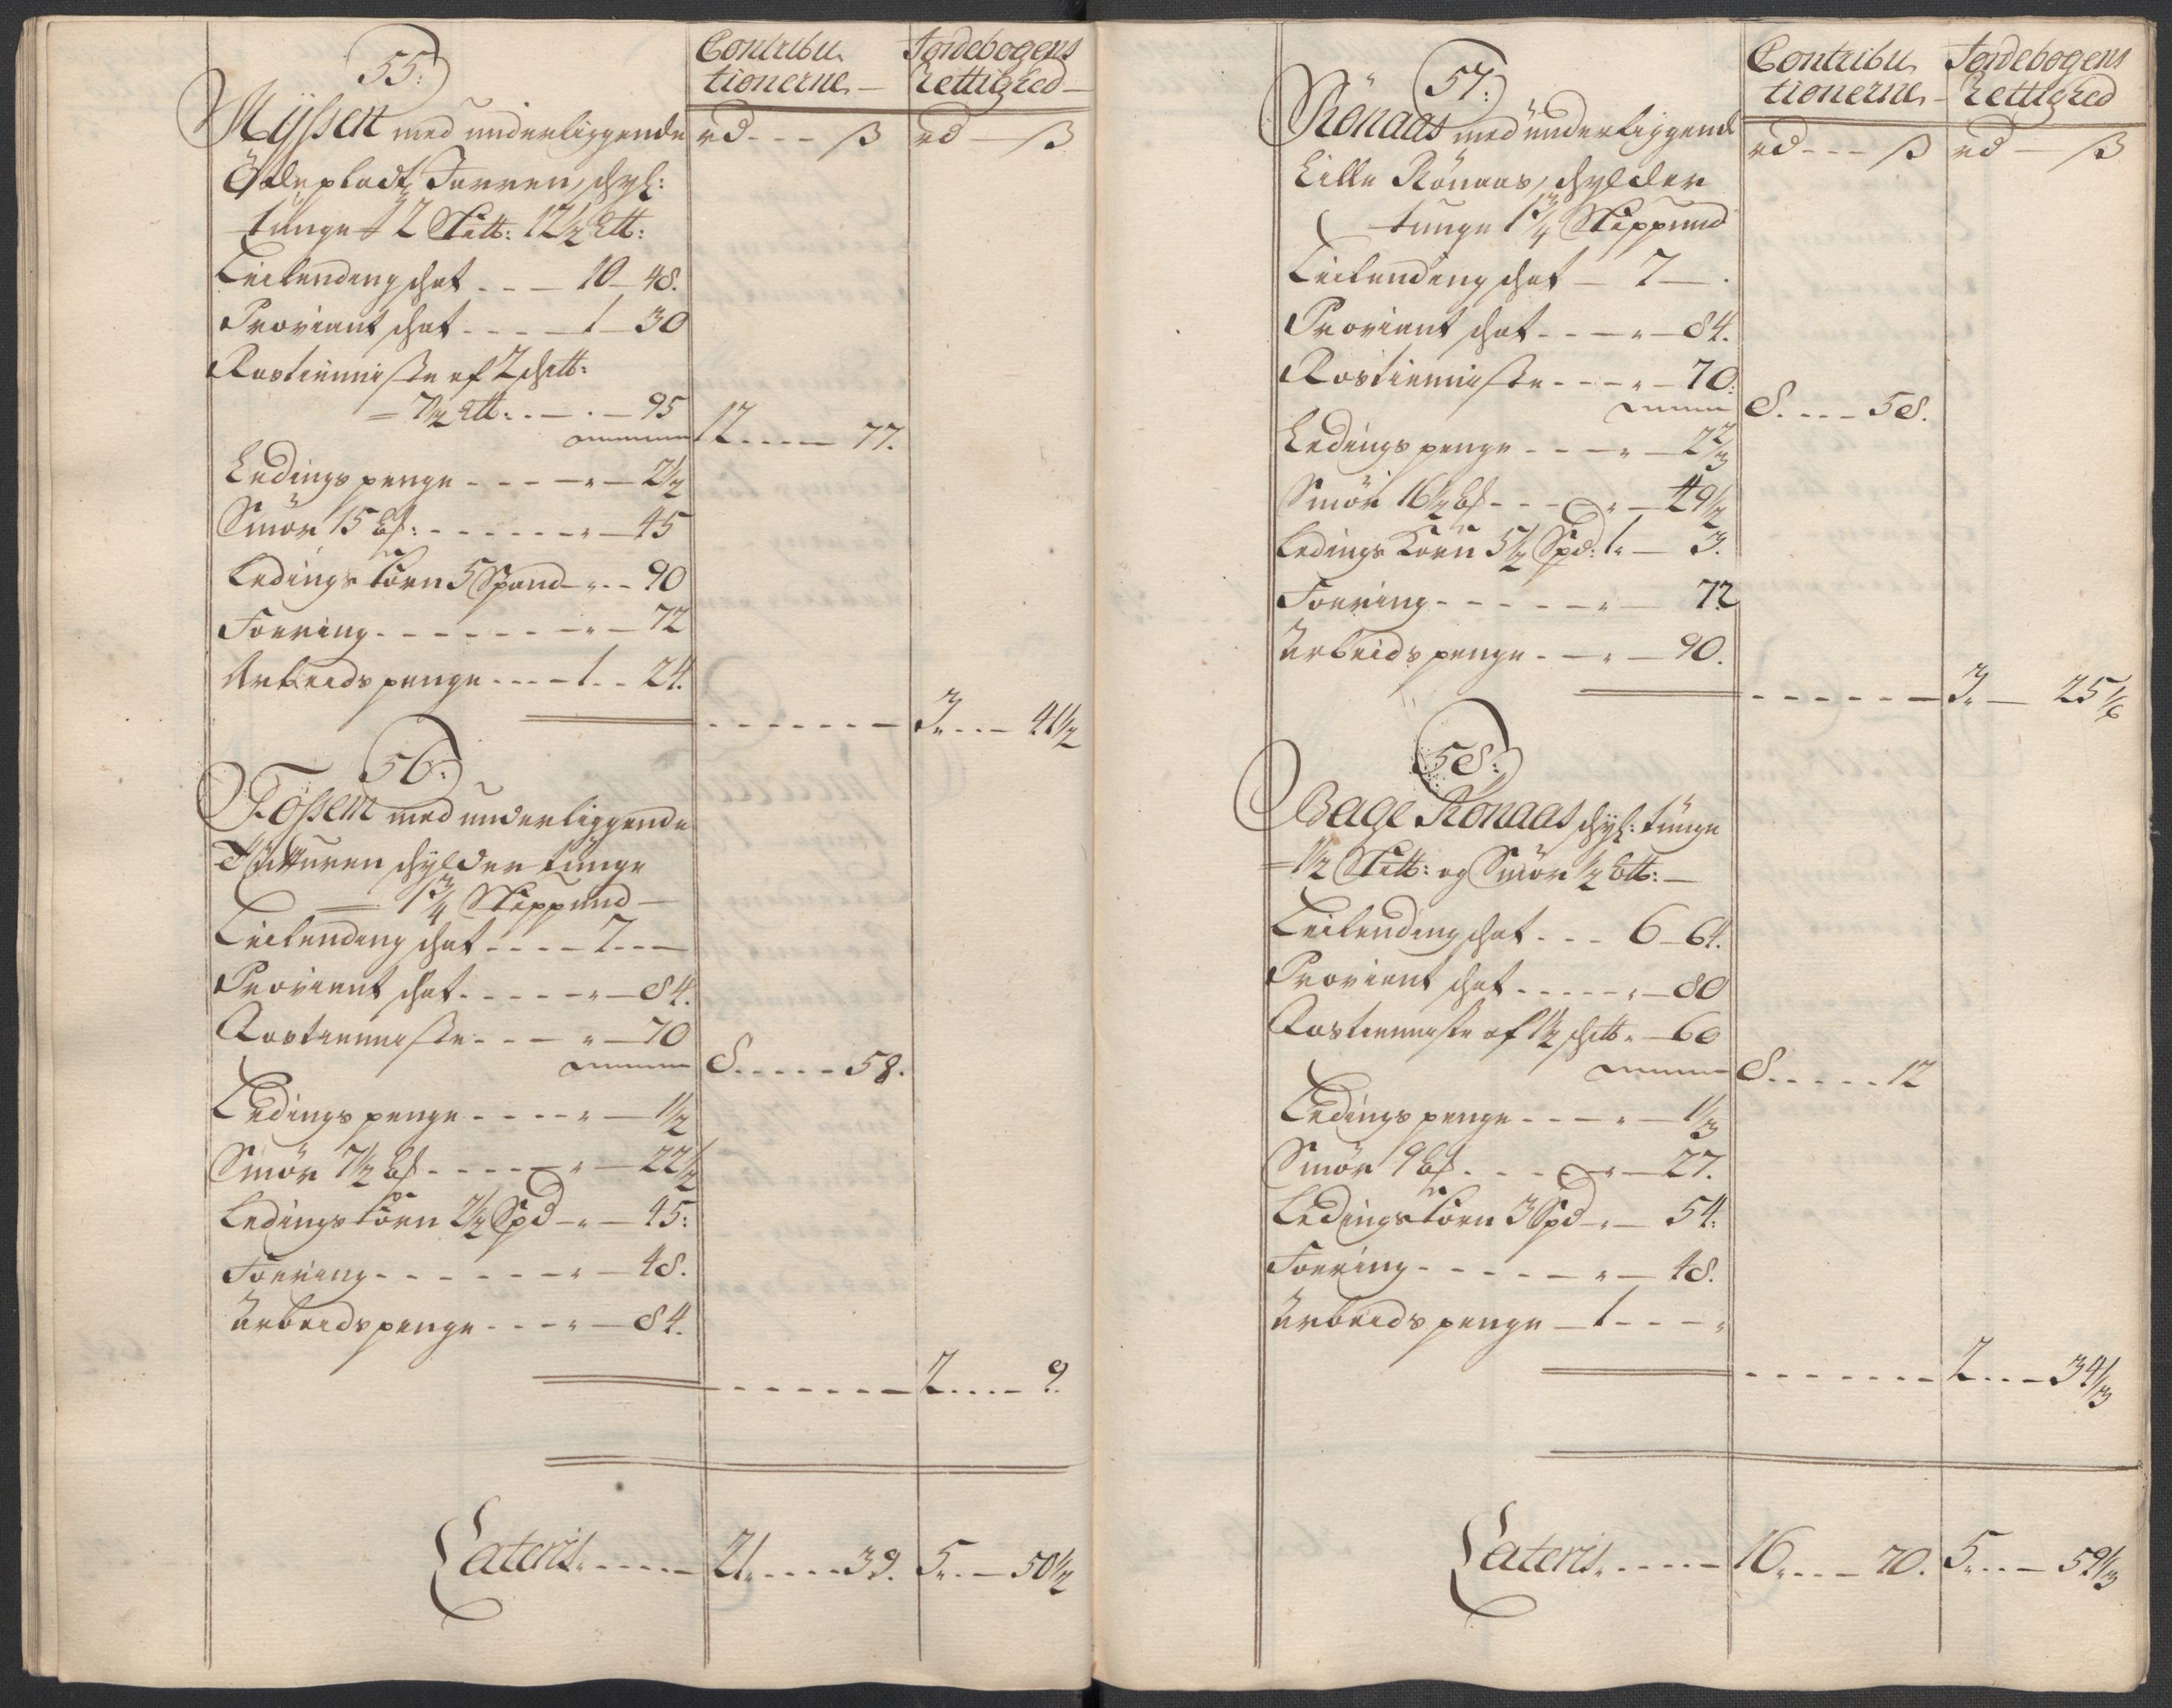 55:
Contribu
tionerne
Jordebogens
Rettighed
Myssen med underliggende
rd - - - ß
rd - ß
Ödeplads Furren, schyl:
tunge 2 Sk℔: 12½ L℔:
Leilending schat - - - 10 - 48.
Proviant schat - - - - 1 - 30
Rostienniste af 2 sch℔:
= 7½ L℔: - - . - 95
12 - - - - 77.
Ledings penge - - - - " - 2½
Smör 15 bs: - - - - - - " - 45
Ledings korn 5 Spand - " - - 90
Foering - - - - - - - " - 72
Arbeids penge - - - - 1 - - 24.
- - - - - - - 3" - - - 41½
56:
Fossem med underliggende
schylder tunge
= 1¾ Skippund -
Leilending schat - - - - 7 - - -
Proviant schat - - - - - " - 84.
Rostienniste - - - " - 70
8 - - - - - 58.
Ledings penge - - - - " - 1½
Smör 7½ bs - - - - - " - 22½
Ledings korn 2½ Spd - " - 45:
Foering - - - - - - - " - 48.
Arbeids penge - - - " - 84.
- - - - - - - 2 - - - - 9.
Lateris - - - - - 21" - - - - 39. 5" - - 50½
57:
Contribu
tionerne
Jordebogens
Rettighed
Rönaas med underliggende
rd - - - ß
rd - ß
Lille Rönaas, schylder
tunge 1¾ Skippund
Leilending schat - 7 - .
Proviant schat - - - " - 84.
Rostienniste - - - " - 70:
8 - - - - 58.
Ledings penge - - - - " - 2⅔
Smör 16½ bs - - - " - 49½
Ledings Korn 5½ Spd: 1" - 3.
Foering - - - - - - " - 72
Arbeids penge - - " - 90.
- - - - - - - 3" - 25⅙
58:
Bage Rönaas schyl: tunge
= 1½ Sk℔: og Smör ½ L℔: -
Leilending schat - - - 6 - 64.
Proviant schat - - - - - " - 80
Rostienniste af 1½ sch℔ " - 60
8 - - - - - 12
Ledings penge - - - - " - 1⅓
Smör 9 bs - - - " - 27.
Ledings korn 3 Spd - " - 54:
Foering - - - - - - " - 48.
Arbeids penge - 1 - - - "
- - - - - - - 2 - - - 34⅓
Lateris - - - - - 16" - - - 70. 5" - - - 59½